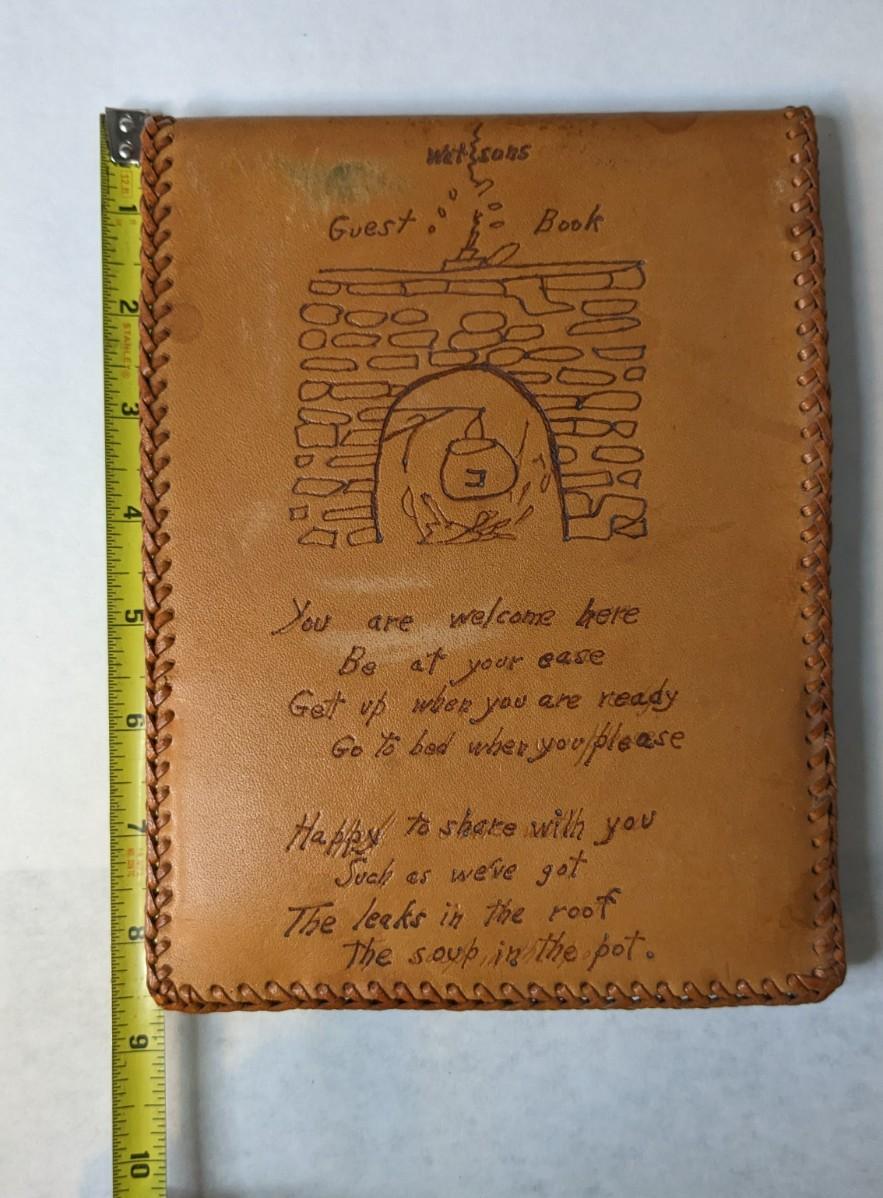 Watsons
Guest Book
You are welcome here
Be at your ease
Get up when you are ready
Go to bed when you please
Happy to share with you
Such as we've got
The leaks in the roof
The soup in the pot.
1
2
STANLEY®
3
4
5
6
7
8
9
10